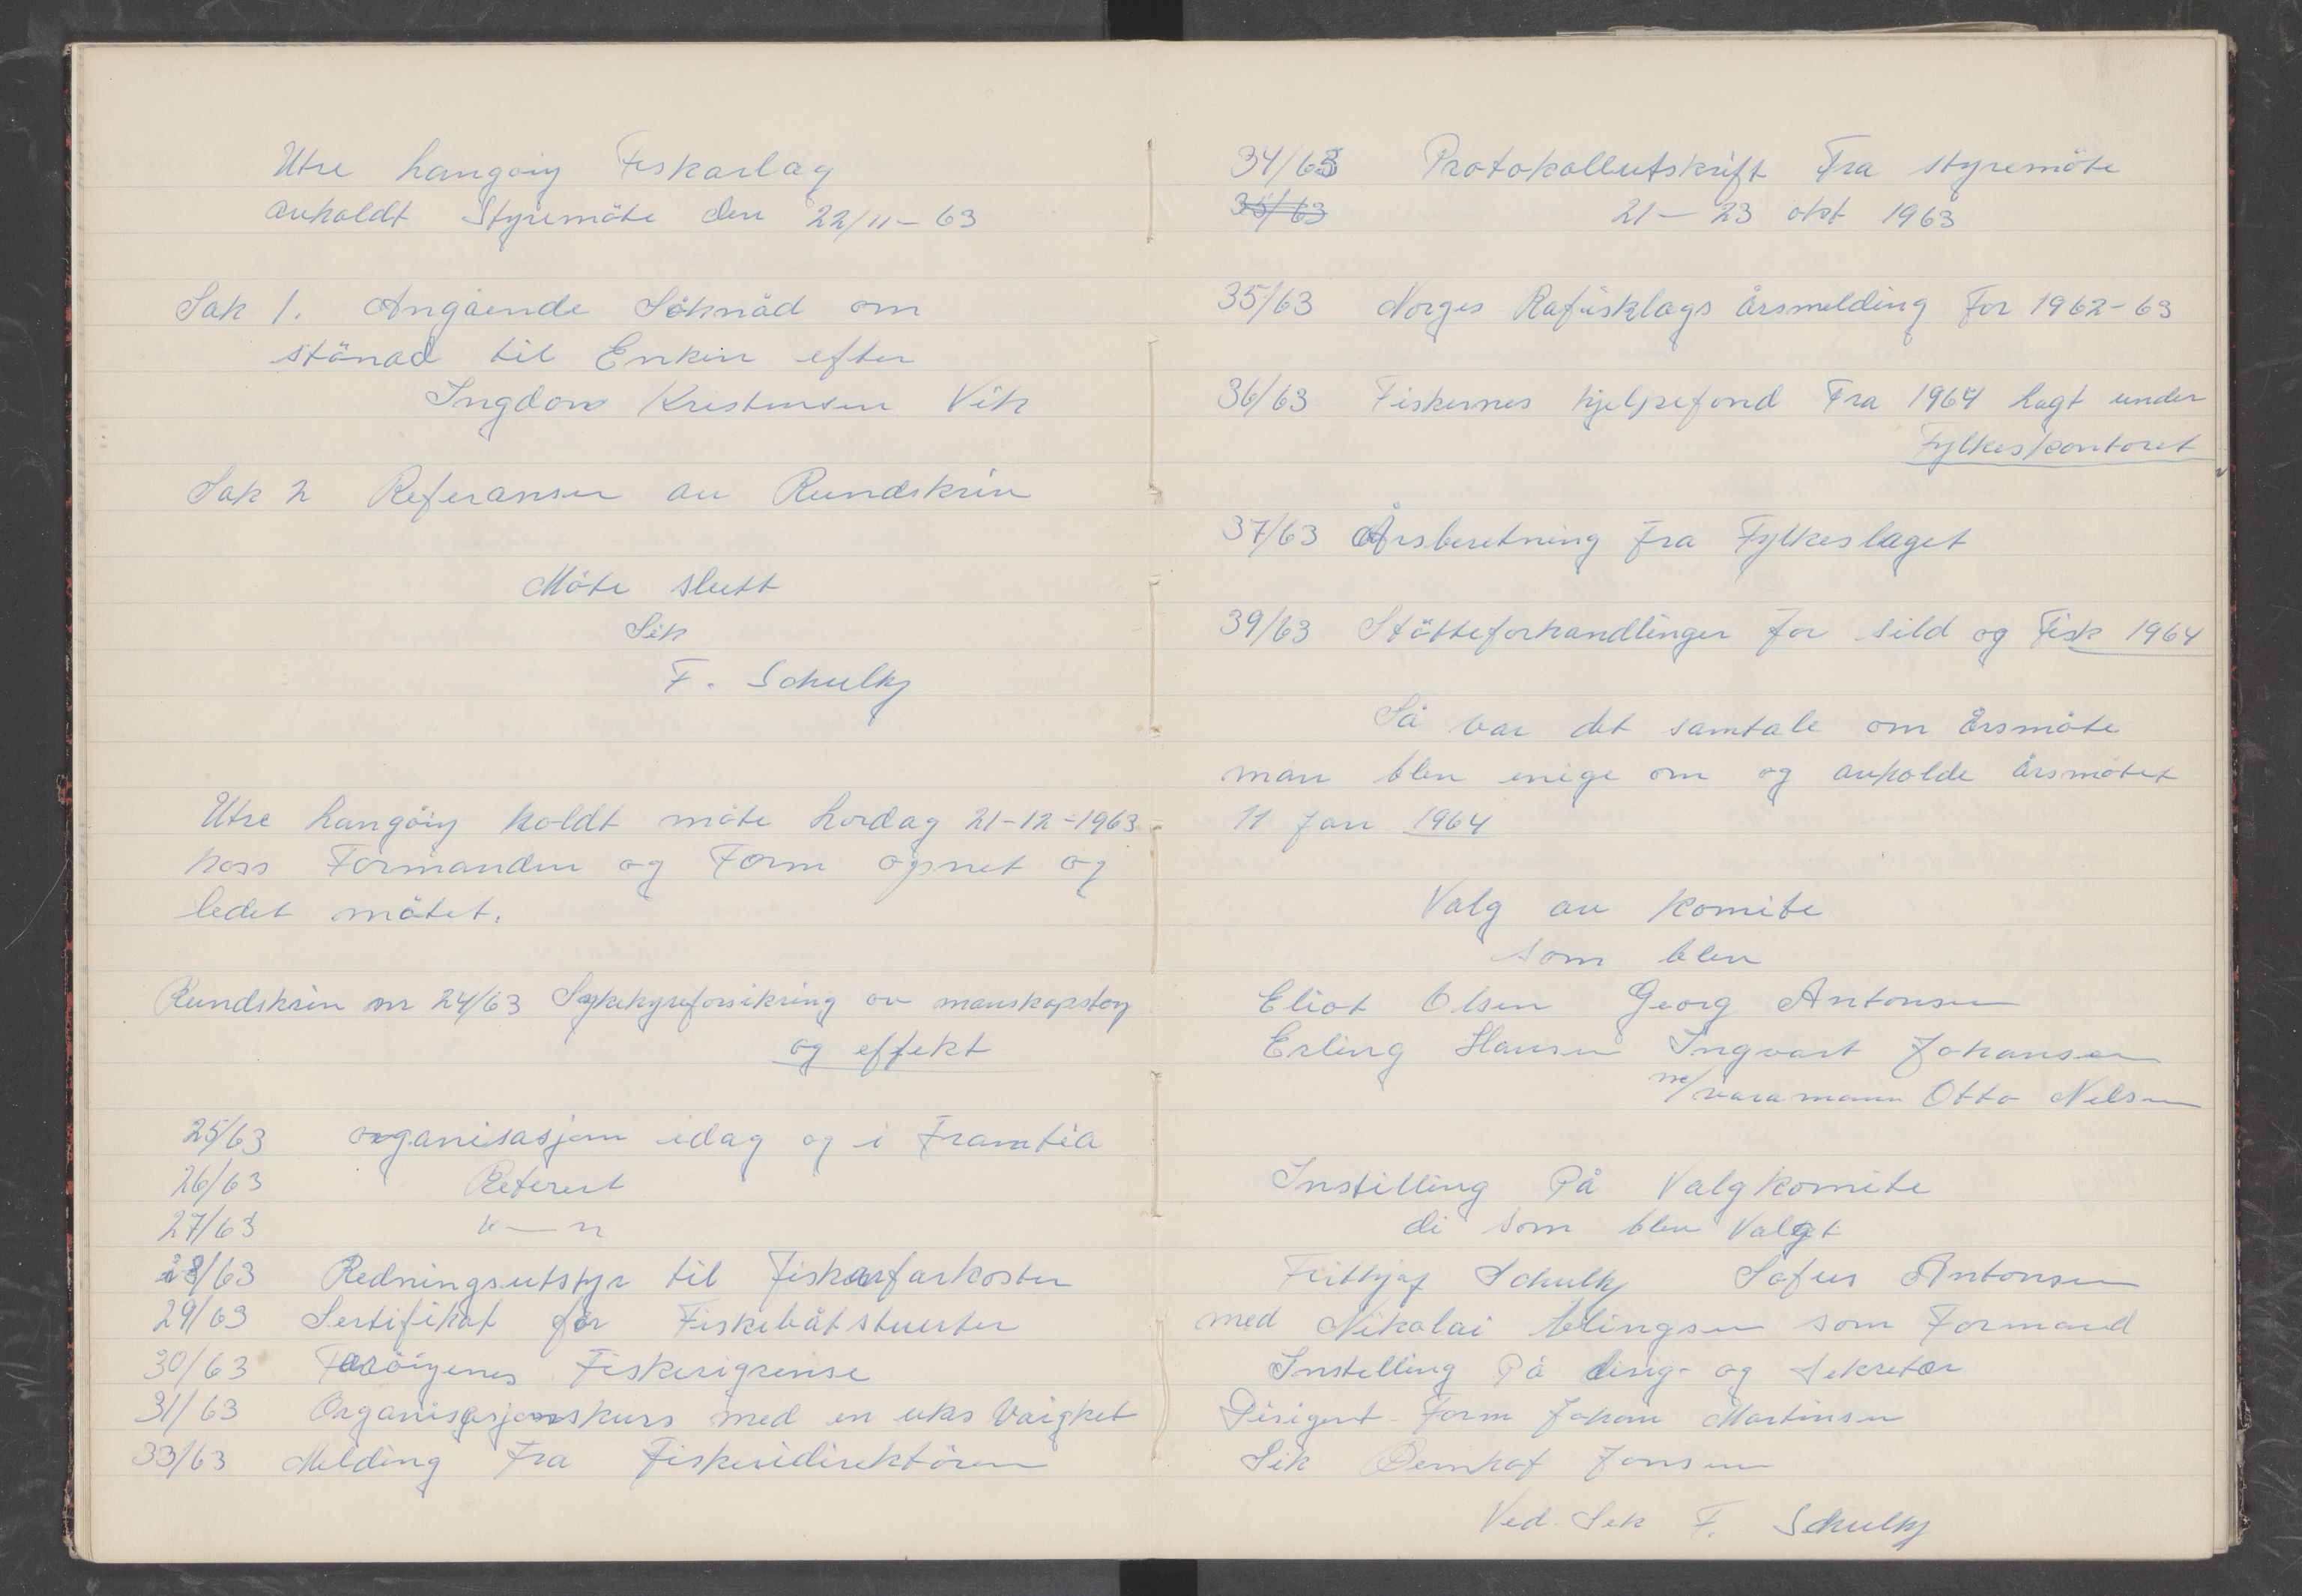 Utre Langöiy Fiskarlag
avholdt Styremöte den 22/11-63
Sak 1. Angående Söknäd om
stönad til Enken efter
Ingdor Kristensen Vik
Sak 2 Referanser av Rundskriv
Möte slutt
Sek
F. Schulky
Utre Langöiy holdt möte Lördag 21-12-1963
hoss Formanden og Form opnet og
ledet mötet.
Rundskriv nr 24/63 av manskapstöy
og effekt
25/63 organisasjon idag og i Framtia
26/63 Referert
27/63 "—"
28/63 Redningsutstyr til fiskarfarkoster
29/63 Sertifikat før Fiskebåtstuerter
30/63 Færöiyenes Fiskerigrense
31/63 Organisasjonskurs med en uks Vaighet
33/63 Melding Fra Fiskeridirektören
34/63 Protokollutskrift Fra styremöte
35/63 21-23 okt 1963
35/63 Norges Rafisklags årsmelding For 1962-63
36/63 Fiskernes hjelpefond Fra 1964 lagt under
Fylkeskontoret
37/63 Årsberetning fra Fylkeslaget
39/63 Stötteforhandlinger for sild og Fisk 1964
Så var det samtale om årsmöte
man blev enige om og avholde årsmötet
11 Jan 1964
Valg av komite
som blev
Eliot Olsen Georg Antonsen
Erling Hansen Ingvart Johansen
m/varamann Otto Nelsen
Instilling På Valgkomite
di som blev Valgt
Frithjof Schulky Sofus Antonsen
med Nikolai som Formand
Instelling På dirig- og Sekretær
Dirigent- Form Johan Martinsen
Sek Jonsen
Ved. Sek F. Schulky